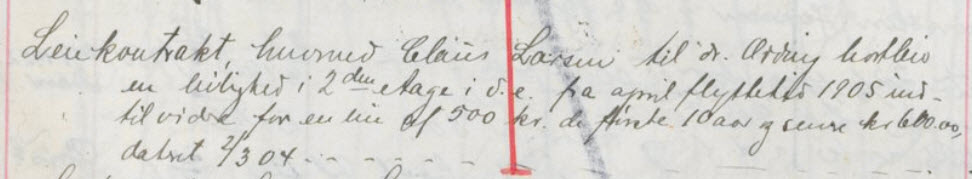 Leiekontrakt, hvorved Claus Larsen til dr. Ording bortleier
en leilighed i 2den etage i d. e. fra april flyttetid 1905 ind-
til videre for en leie af 500 kr. de første 10 aar og senere kr 600.00,
datert 7/3 04 - - - - - -